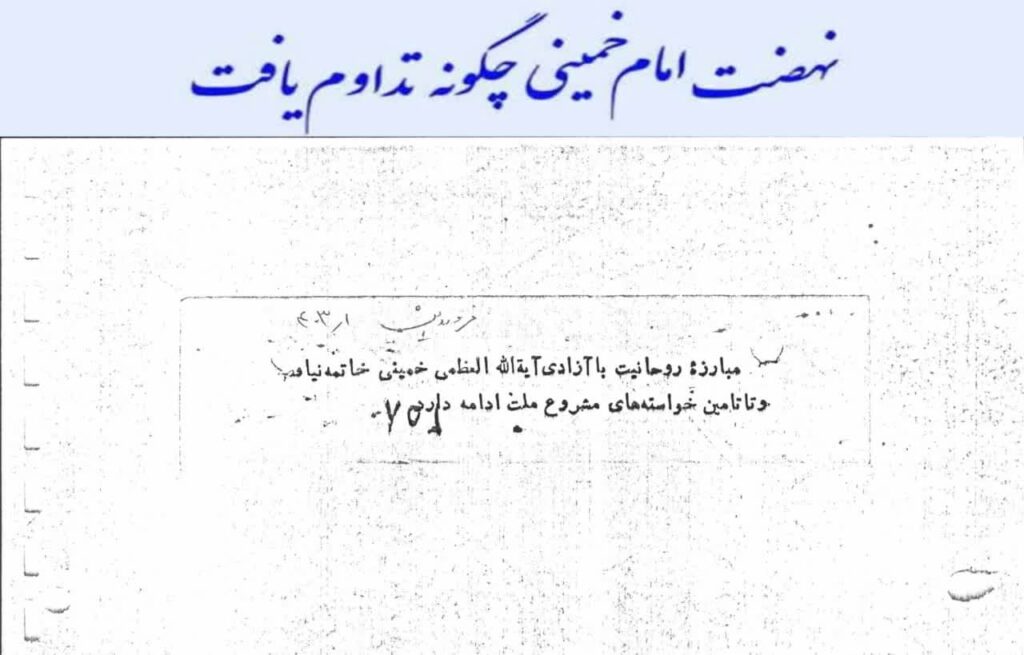 نهضت امام خمینی چگونه تداوم یافت
فروردین
مبارزهٔ روحانیت با آزادی آیةالله العظمی خمینی خاتمه نیافت
و تا تامین خواسته‌های مشروع ملت ادامه دارد